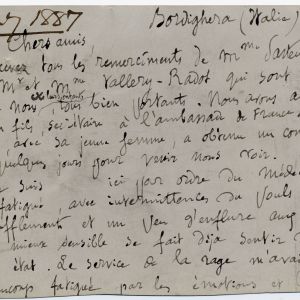 1887 Bordighera (Italie)
Chers amis,
cevez tous les remerciments de Mme Pasteur
M. et Mme Vallery-Radot qui sont
nous, tous bien portants. Nous avons a
fils, secrétaire à l'ambassade de France
avec sa jeune femme, a obtenu un con
quelques jours pour venir nous voir.
suis ici par ordre du Méde
fatigué, avec intermittences du pouls
fflement et un peu d'enflure aux
mieux sensible se fait déja sentir d
état. Le service de la rage m'avai
coup fatigué par les émotions et